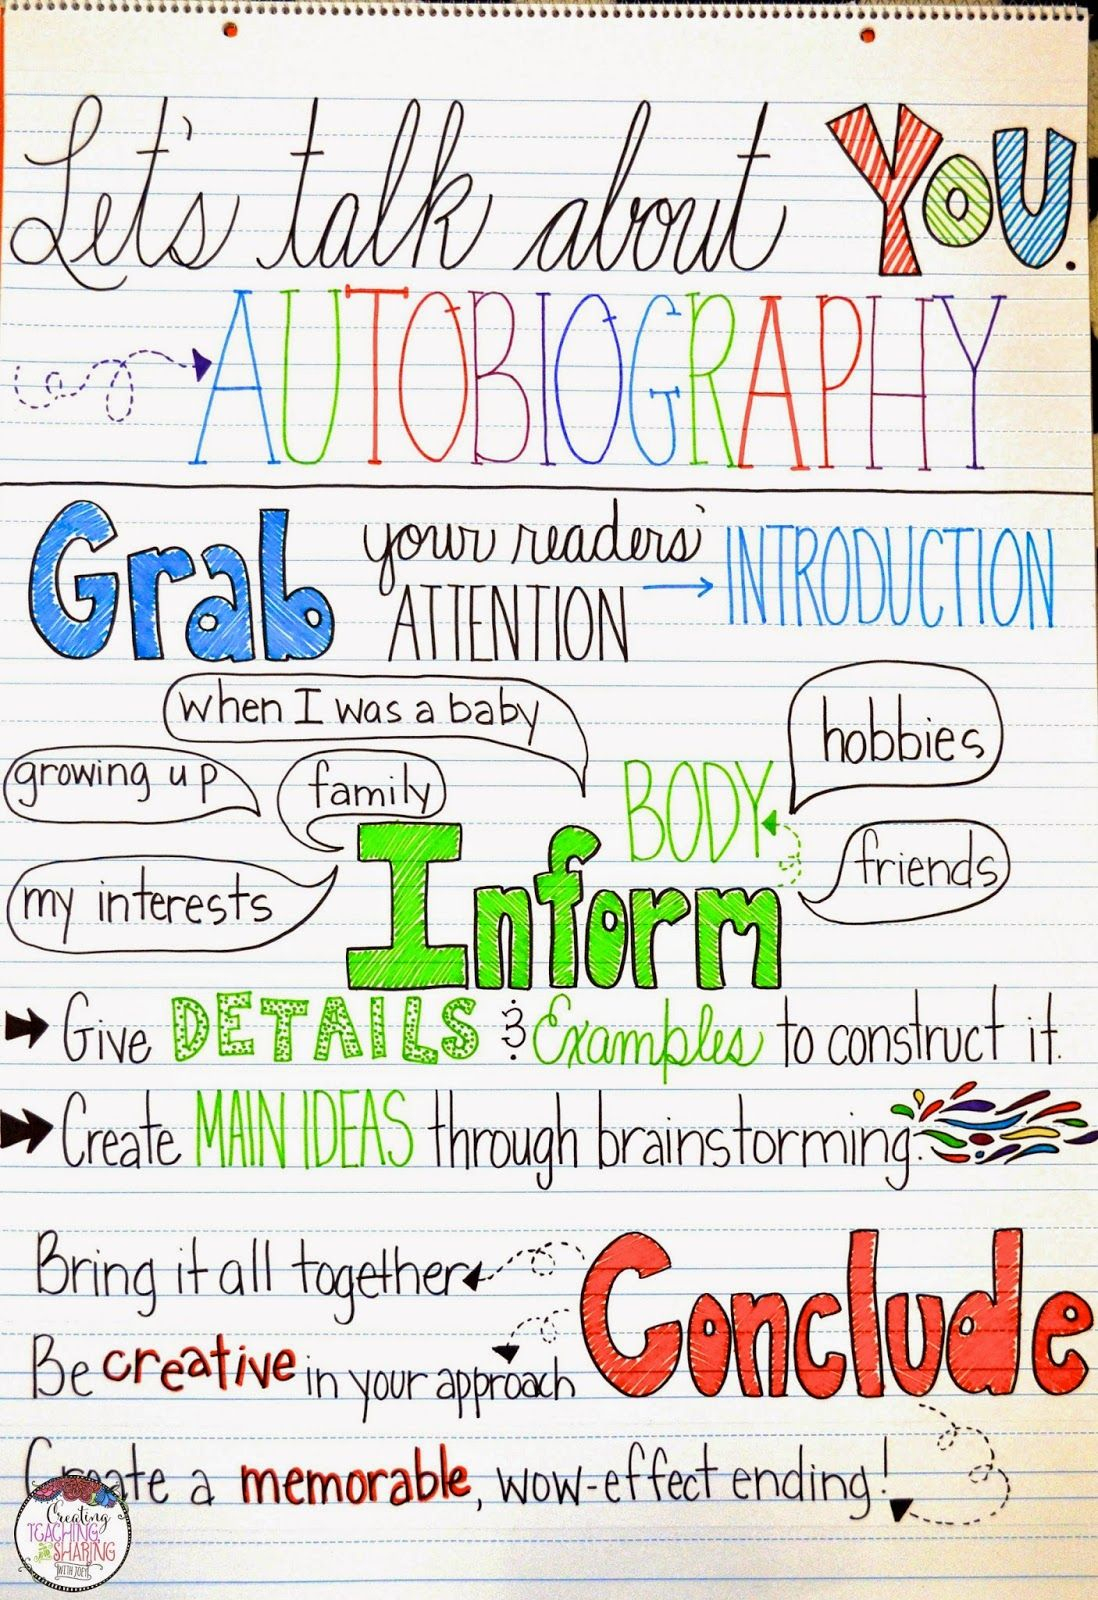 Let's talk about YOU.
AUTOBIOGRAPHY
Grab your readers' ATTENTION → INTRODUCTION
when I was a baby
hobbies
growing up
family
BODY
friends
my interests
Inform
Give DETAILS & Examples to construct it.
Create MAIN IDEAS through brainstorming.
Conclude
Bring it all together
Be creative in your approach
Create a memorable, wow-effect ending!
Creating
TEACHING
and
SHARING
WITH JOEY